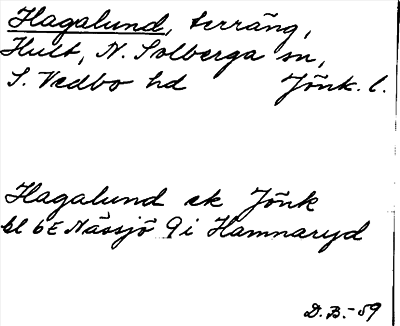 Hagalund, terräng,
Hult, N. Solberga sn,
S. Vedbo hd Jönk. l.
Hagalund ek Jönk
bl 6E Nässjö 9i Hamnaryd
D.B.-59